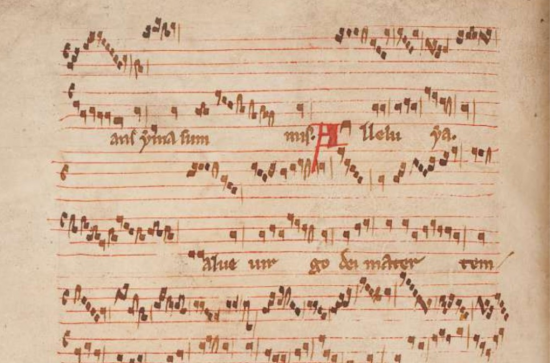 ans yma sum mis. Allelu ya.
alue uir go dei mater tem